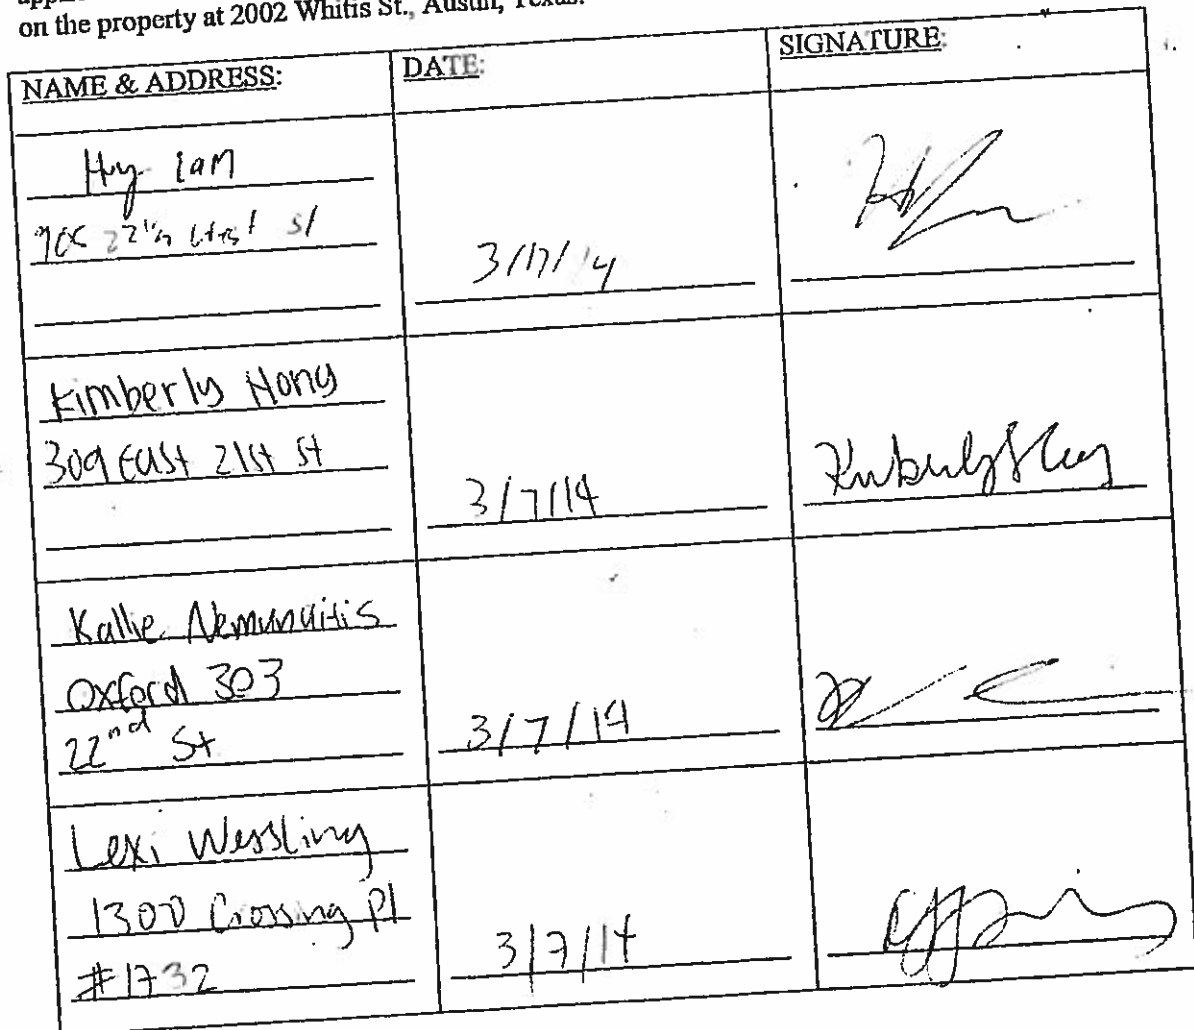 on the property at 2002 Whitis St., Austin, Texas.
NAME & ADDRESS:
DATE:
SIGNATURE:
Hy Lam
3/17/14
Kimberly Hong
309 East 21st st
3/7/14
Kallie Nemunaitis
Oxford 303
22nd St
3/7/14
Lexi Wessling
1300 Crossing Pl
#1732
3/7/14